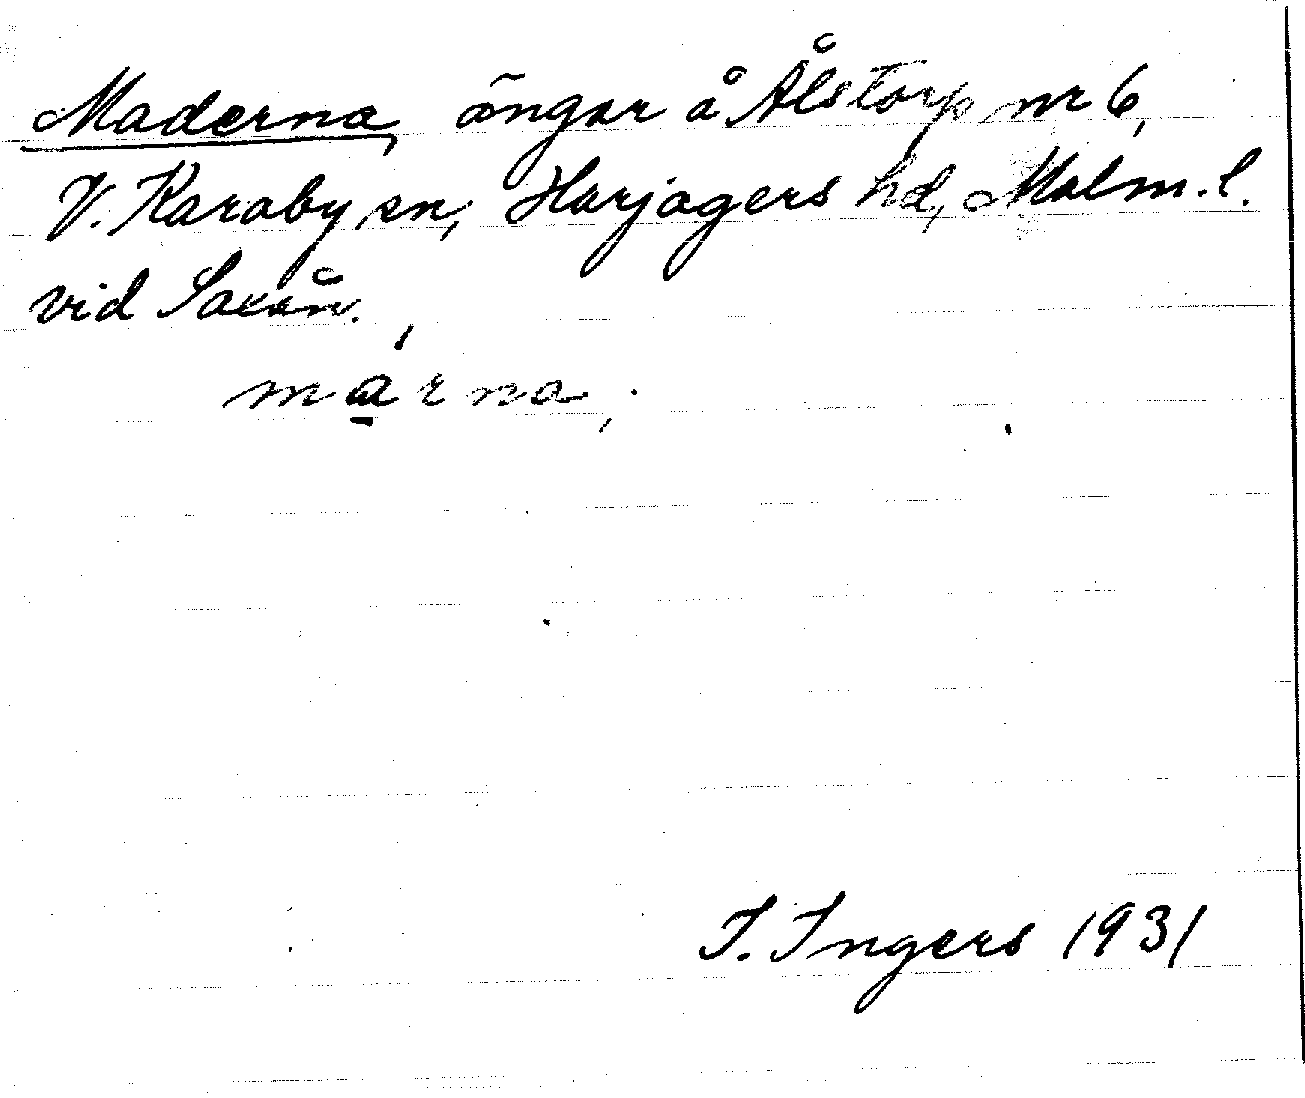 Maderna, ängar å Ålstorp nr 6,
V. Karaby sn, Harjagers hd, Malm. l.
vid Saxån.
márna,
I. Ingers 1931